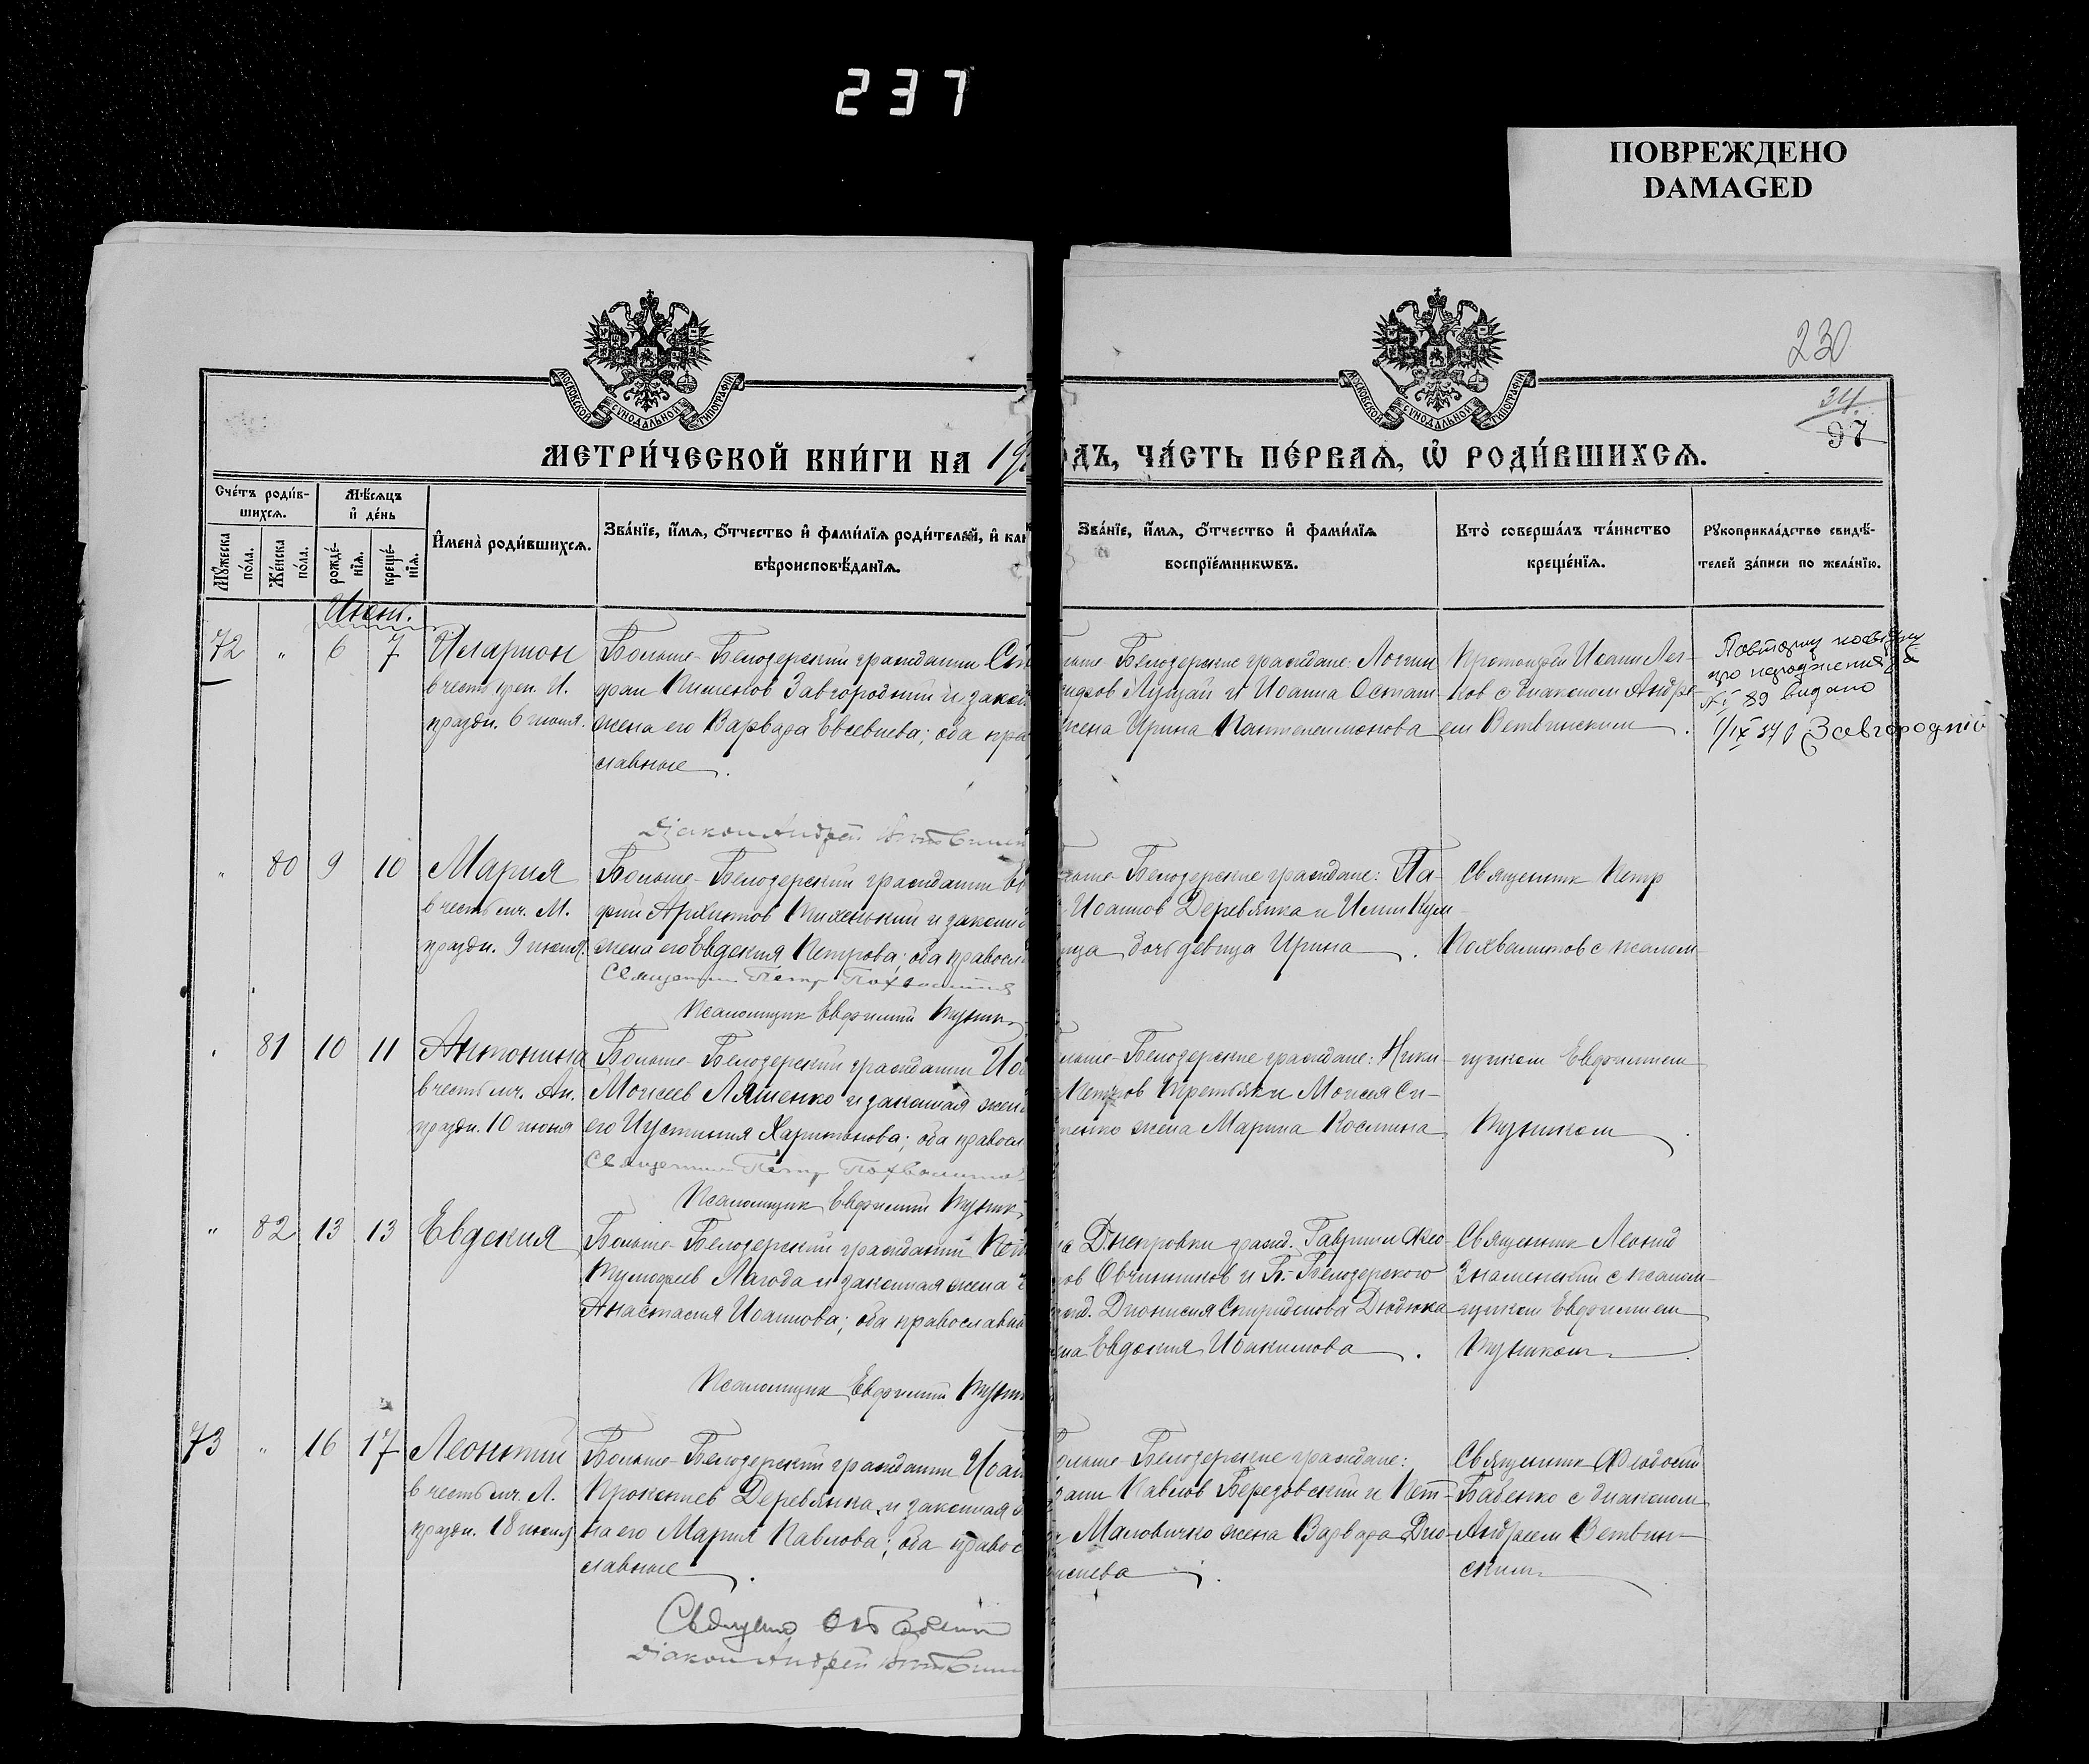 237
ПОВРЕЖДЕНО
DAMAGED
230
34
97
МОСКОВСКОЙ СѴНОДАЛЬНОЙ ТИПОГРАФІИ
МОСКОВСКОЙ СѴНОДАЛЬНОЙ ТИПОГРАФІИ
МЕТРИ́ЧЕСКОЙ КНИ́ГИ НА 19
ДЪ, ЧА́СТЬ ПЕ́РВАѦ, Ѡ҆ РОДИ́ВШИХСѦ.
Сче́тъ роди́в-
шихсѧ.
Мꙋ́жеска по́ла.
Же́нска по́ла.
Мѣ́сѧцъ
и҆ де́нь
рожде́-
нїѧ.
креще́-
нїѧ.
И҆мена̀ роди́вшихсѧ.
Зва́нїе, и҆́мѧ, ѻ҆́тчество и҆ фами́лїѧ роди́телей, и҆ ка
вѣроисповѣ́данїѧ.
Зва́нїе, и҆́мѧ, ѻ҆́тчество и҆ фами́лїѧ
воспрїе́мникѡвъ.
Кто̀ соверша́лъ та́инство
креще́нїѧ.
Рꙋкоприкла́дство свидѣ́-
телей за́писи по жела́нїю.
Июнь.
72 " 6 7
Иларион
в честь преп. И.
праздн. 6 июня.
Больше-Белозерский гражданин Сте
фан Пименов Завгородний и закон
жена его Варвара Евсевиева; оба пра
славные.
Диакон Андрей
льше Белозерские граждане: Логин
Луцай и Иоанна Осташ
жена Ирина Пантелеимонова
Протоиерей Иоанн Лег-
ков с диаконом Андре-
ем Ветвинским.
Повторну
про народження
№ 89 видано
1/IX 37 Завгородній
" 80 9 10
Мария
в честь мч. М.
праздн. 9 июня.
Больше-Белозерский гражданин Ев
фий Архипов Тихенький и законн
жена его Евдокия Петрова; оба правосл
Священник Петр Похвалитов
Псаломщик Евфимий Тупик
льше-Белозерские граждане: Па-
Иоаннов Деревянка и
дочь девица Ирина.
Священник Петр
Похвалитов с псалом-
81 10 11
Антонина
в честь мч. Ан.
праздн. 10 июня
Больше-Белозерский гражданин Иоа
Моисеев Ляшенко и законная жен
его Иустиния Харитонова; оба правосл
Священник Петр Похвалитов
Псаломщик Евфимий Тупик
льше-Белозерские граждане: Ники-
Петров Третьяк и Моисея Си-
ненко жена Марина Космина
щиком Евфимием
Тупиком.
" 82 13 13
Евдокия
Больше-Белозерский гражданин
Тимофеев Лагода и законная жена е
Анастасия Иоаннова; оба православны
Псаломщик Евфимий Тупик
Днепровки гражд. Гавриил Фео-
ов Овчинников и Б.-Белозерского
жд. Дионисия Спиридонова Дюдюка
на Евдокия Иоакимова.
Священник Леонид
Знаменский с псалом-
щиком Евфимием
Тупиком.
73 " 16 17
Леонтий
в честь мч. Л.
праздн. 18 июня
Больше-Белозерский гражданин Иоан
Прокопиев Деревянка и законная ж
на его Мария Павлова; оба правос
славные.
Диакон Андрей
ольше-Белозерские граждане:
Павлов Березовский и Пет-
Маловичко жена Варвара Дио-
нисиева.
Священник Феодосий
Бабенко с диаконом
Андреем Ветвин-
ским.